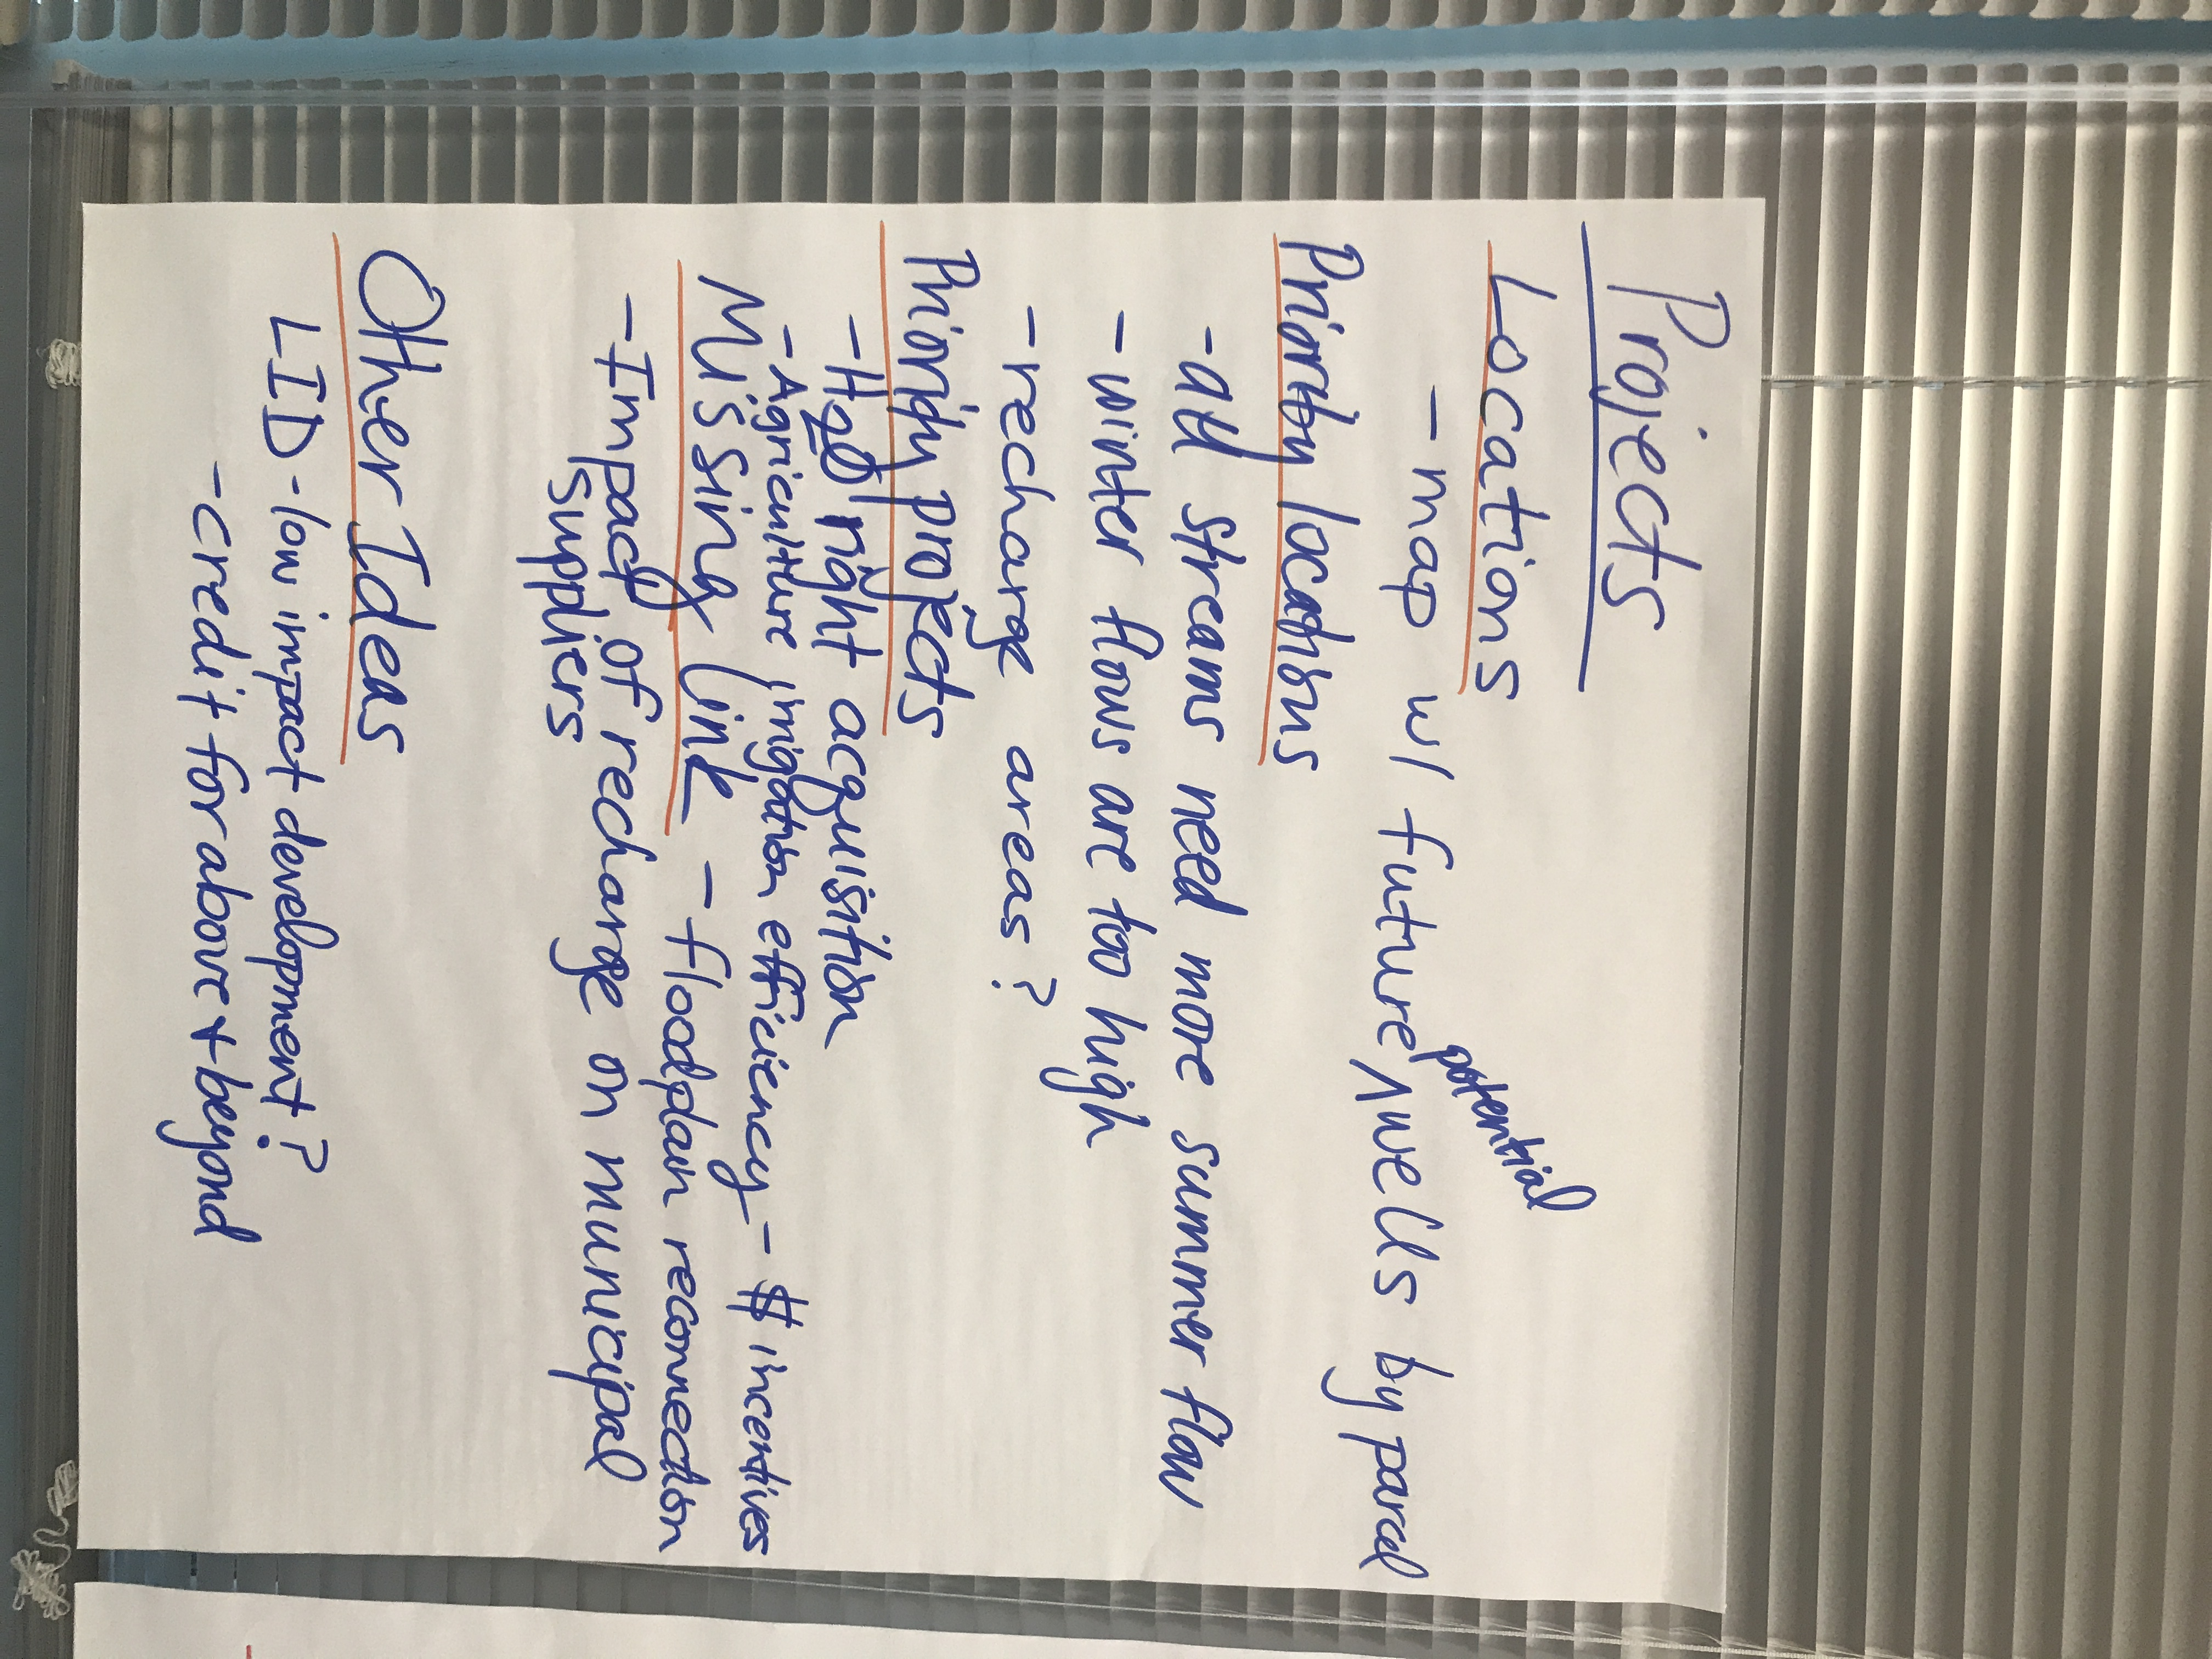 Projects
Locations
- map w/ future ^ potential wells by parcel
Priority locations
- all streams need more summer flow
- winter flows are too high
- recharge areas?
Priority projects
- H2O right acquisition
- Agriculture irrigation efficiency - $ incentives
Missing link - floodplain reconnection
- Impact of recharge on municipal
suppliers
Other Ideas
LID - low impact development?
- credit for above + beyond